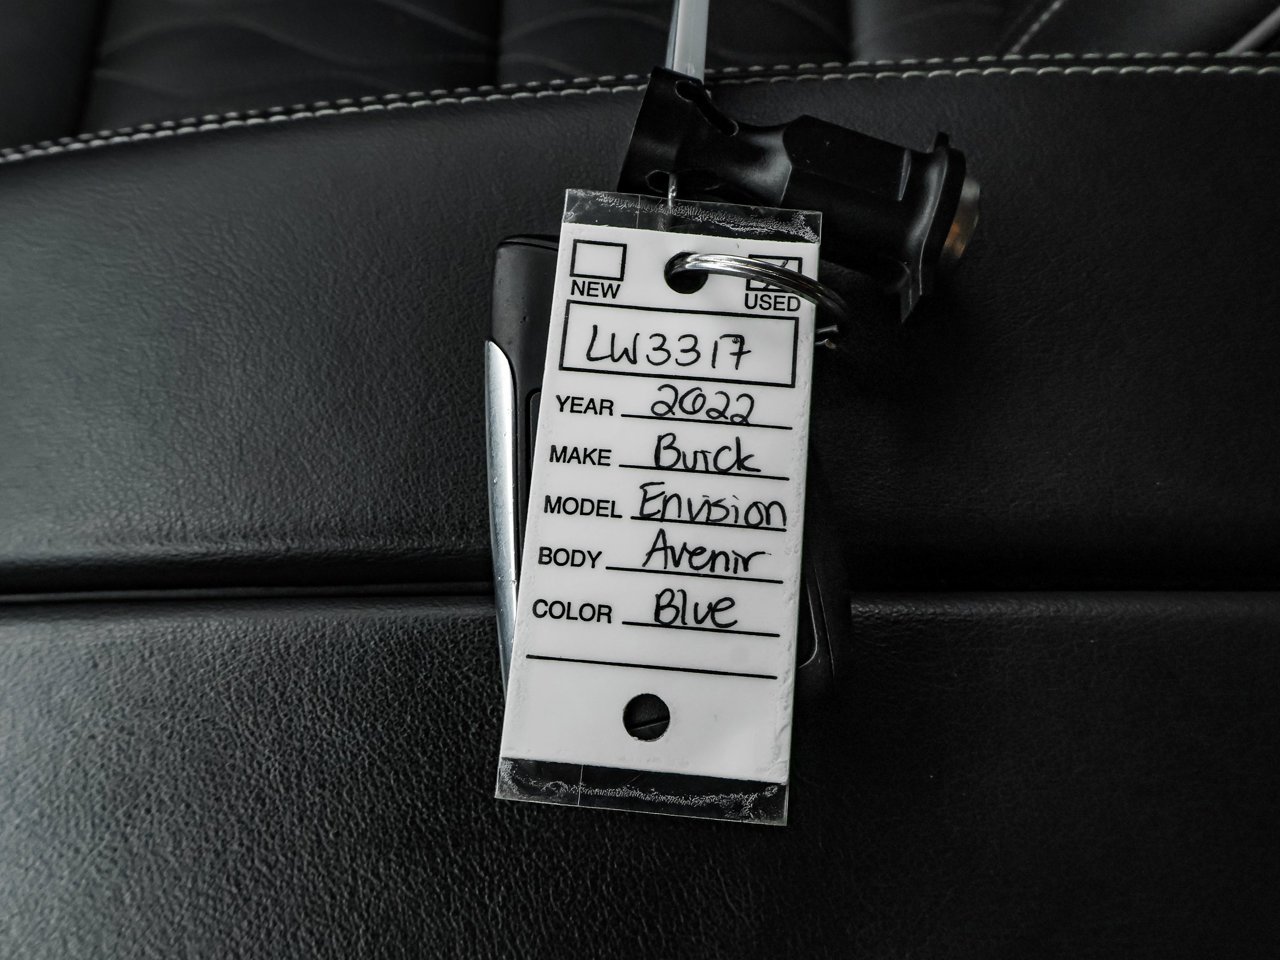 NEW USED
LW3317
YEAR 2022
MAKE Buick
MODEL Envision
BODY Avenir
COLOR Blue